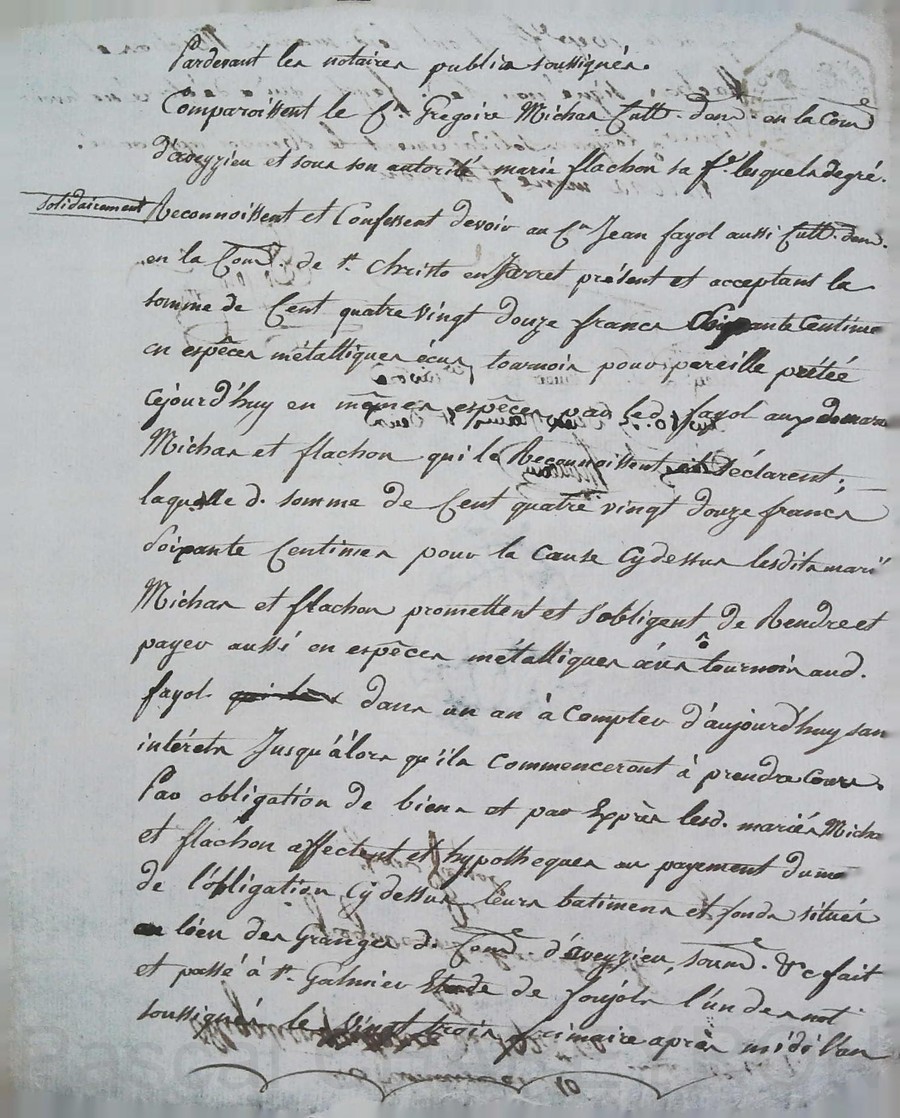 Pardevant les notaires publics soussignés.
Comparoissent le Cn. Grégoire Michas Cultr. dem. en la Come
d'aveyzieu et sous son autorité marie flachon sa fe. lesquels de gré.
solidairement
Reconnoissent et Confessent devoir au Cn Jean fayol aussi Cultr. dem.
en la Come. de st. Christo en Jarret présent et acceptant la
somme de Cent quatre vingt douze francs Soixante Centimes
en espêces métalliques écus tournois pour pareille prêtée
Cejourd'huy en mêmes espêces par led. fayol auxd. mariés
Michas et flachon qui le Reconnoissent et Déclarent;
laquelle d. somme de Cent quatre vingt douze francs
Soixante Centimes pour la Cause Cy dessus lesdits mariés
Michas et flachon promettent et s'obligent de Rendre et
payer aussi en espêces métalliques écus tournois aud.
fayol dans un an à Compter d'aujourd'huy sans
intérets Jusqu'àlors qu'ils Commenceront à prendre Cours.
Par obligation de biens et par Exprès lesd. mariés Michas
et flachon affectent et hypothequent au payement du mt
de l'obligation Cy dessus leurs batimens et fonds situés
au lieu des Granges d. Come. d'aveyzieu, soumd. &c fait
et passé à st. Galmier Etude de foujols l'un des not
soussignés le vingt trois frimaire après midi l'an